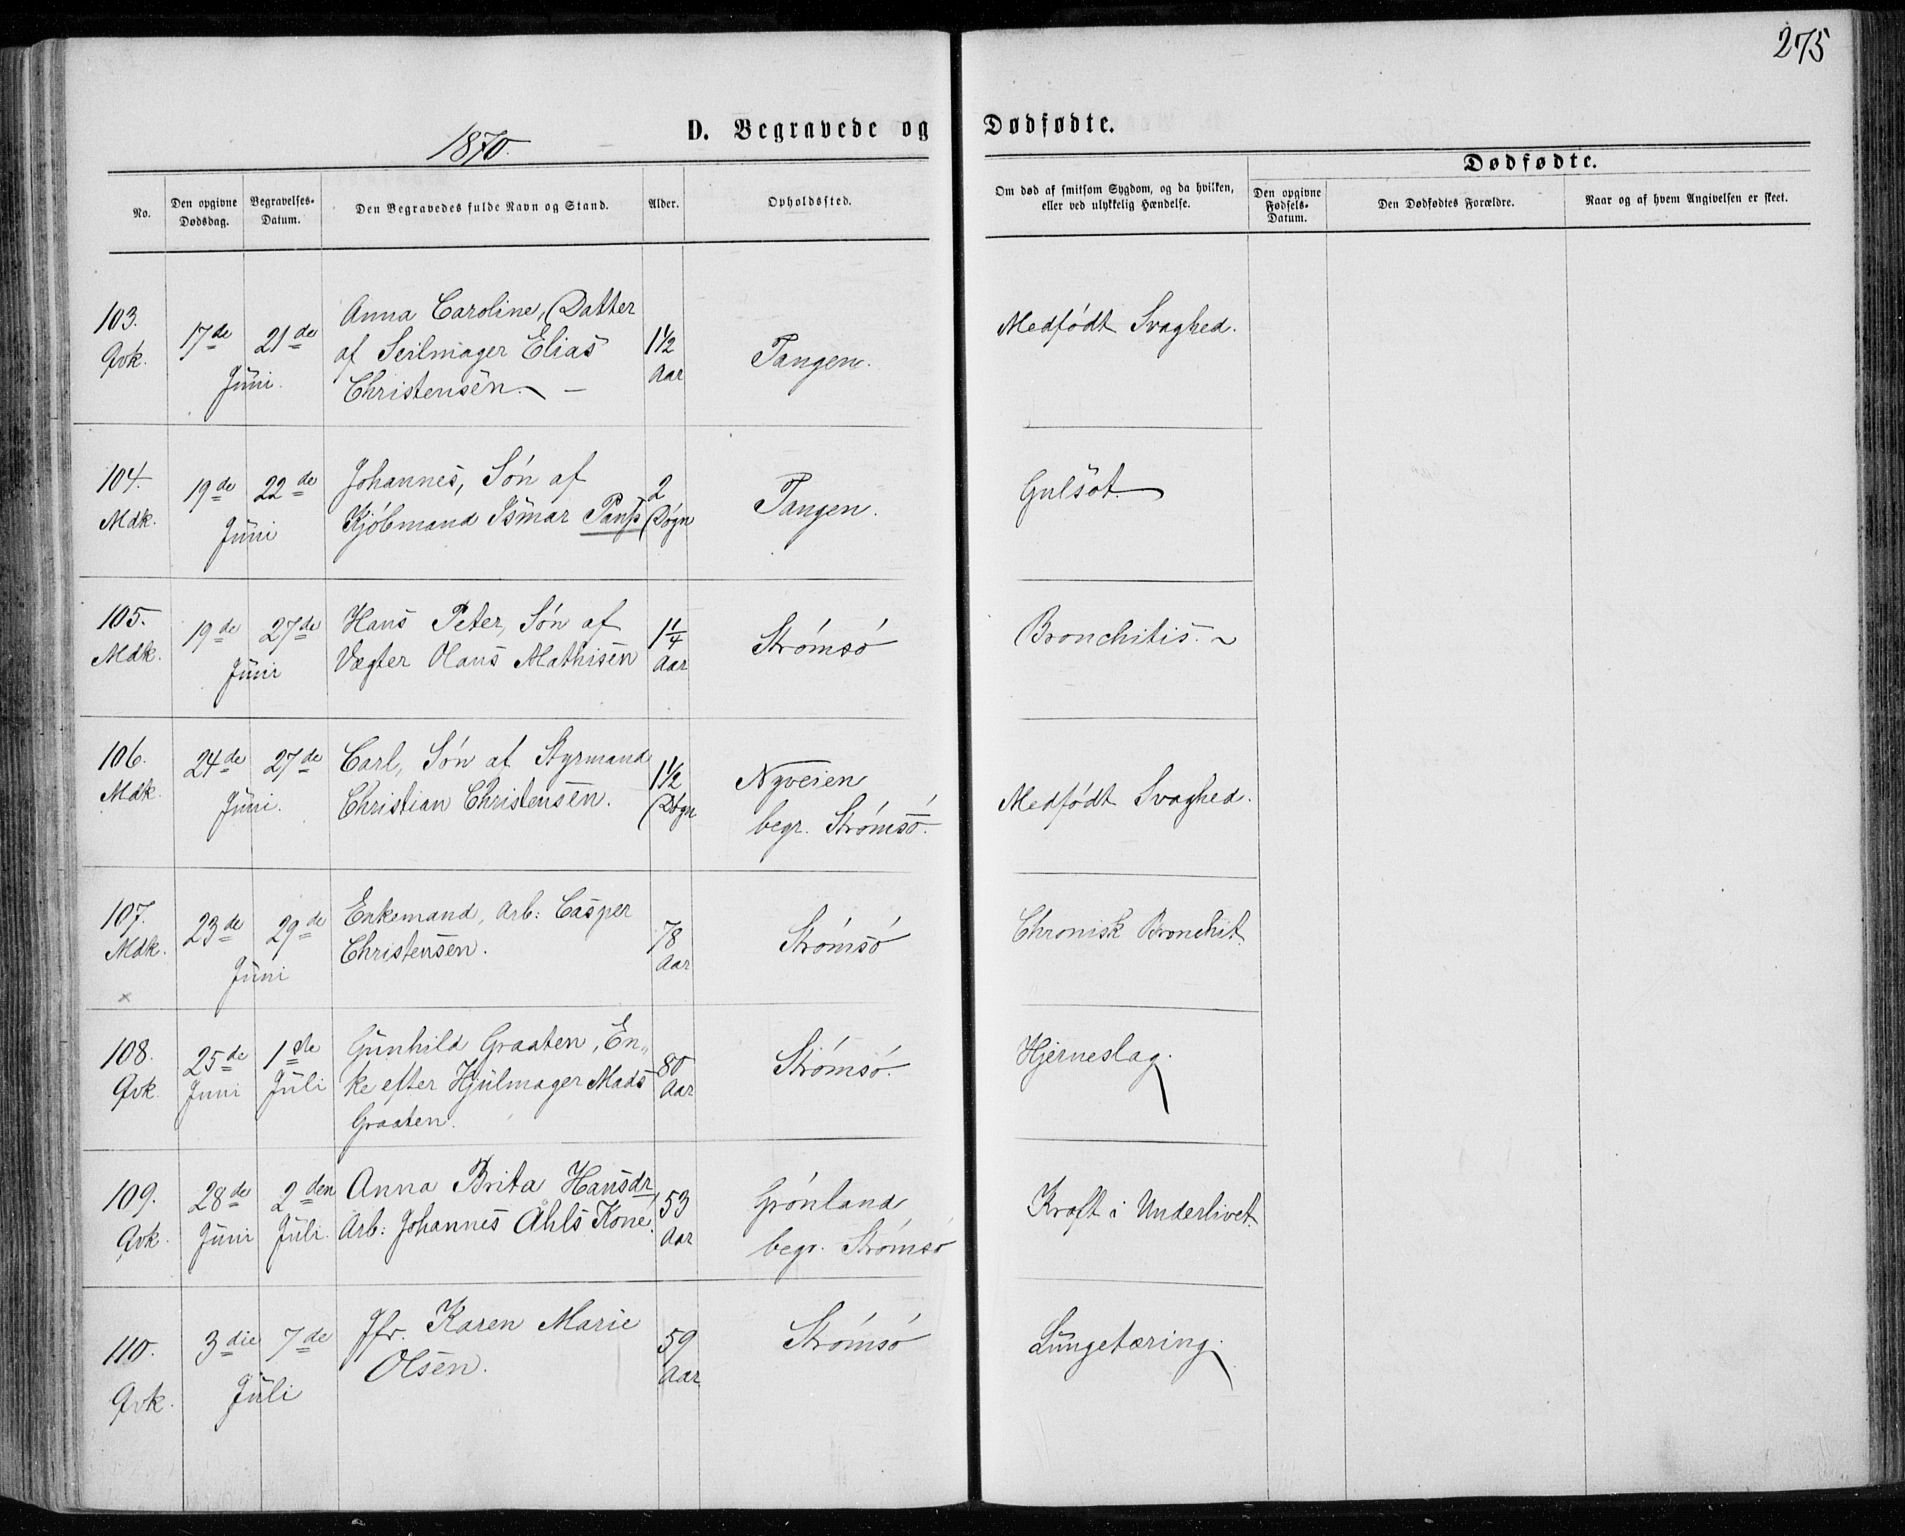 275
1870.
D. Begravede og Dødfødte.
Dødfødte.
No.
Den opgivne Dødsdag.
Begravelses-Datum.
Den Begravedes fulde Navn og Stand.
Alder.
Opholdssted.
Om død af smitsom Sygdom, og da hvilken, eller ved ulykkelig Hændelse.
Den opgivne Fødsels-Datum.
Den Dødfødtes Forældre.
Naar og af hvem Angivelsen er skeet.
103. Qvk. 17de 21de Juni.
Anna Caroline, Datter
af Seilmager Elias
Christensen. —
1½ Aar
Tangen.
Medfödt Svaghed.
104. Mdk. 19de 22de Juni
Johannes, Søn af
Kjøbmand Ismar
2 Døgn
Tangen.
Gulsot.
105. Mdk. 19de 27de Juni
Hans Peter, Søn af
Vægter Olaus Mathisen
1¼ Aar
Strømsø
Bronchitis. ~
106. Mdk. 24de 27de Juni.
Carl, Søn af Styrmand
Christian Christensen.
1½ Døgn
Nyveien
begr. Strømsø.
Medfødt Svaghed.
107. Mdk. 23de 29de Juni
Enkemand, Arb: Casper
Christensen.
78 Aar
Strømsø
Chronisk Bronchit.
×
108. Qvk. 25de Juni 1ste Juli
Gunhild Graaten, En„
ke efter Hjulmager Mads
Graaten.
80 Aar
Strømsø.
Hjerneslag.
109. Qvk. 28de Juni 2den Juli.
Anna Brita Hansdr
Arb: Johannes Åhls Kone.
53 Aar
Grønland
begr. Strømsø
Kræft i Underlivet.
110. Qvk. 3die 7de Juli
Jfr. Karen Marie
Olsen.
59 Aar
Strømsø
Lungetæring.